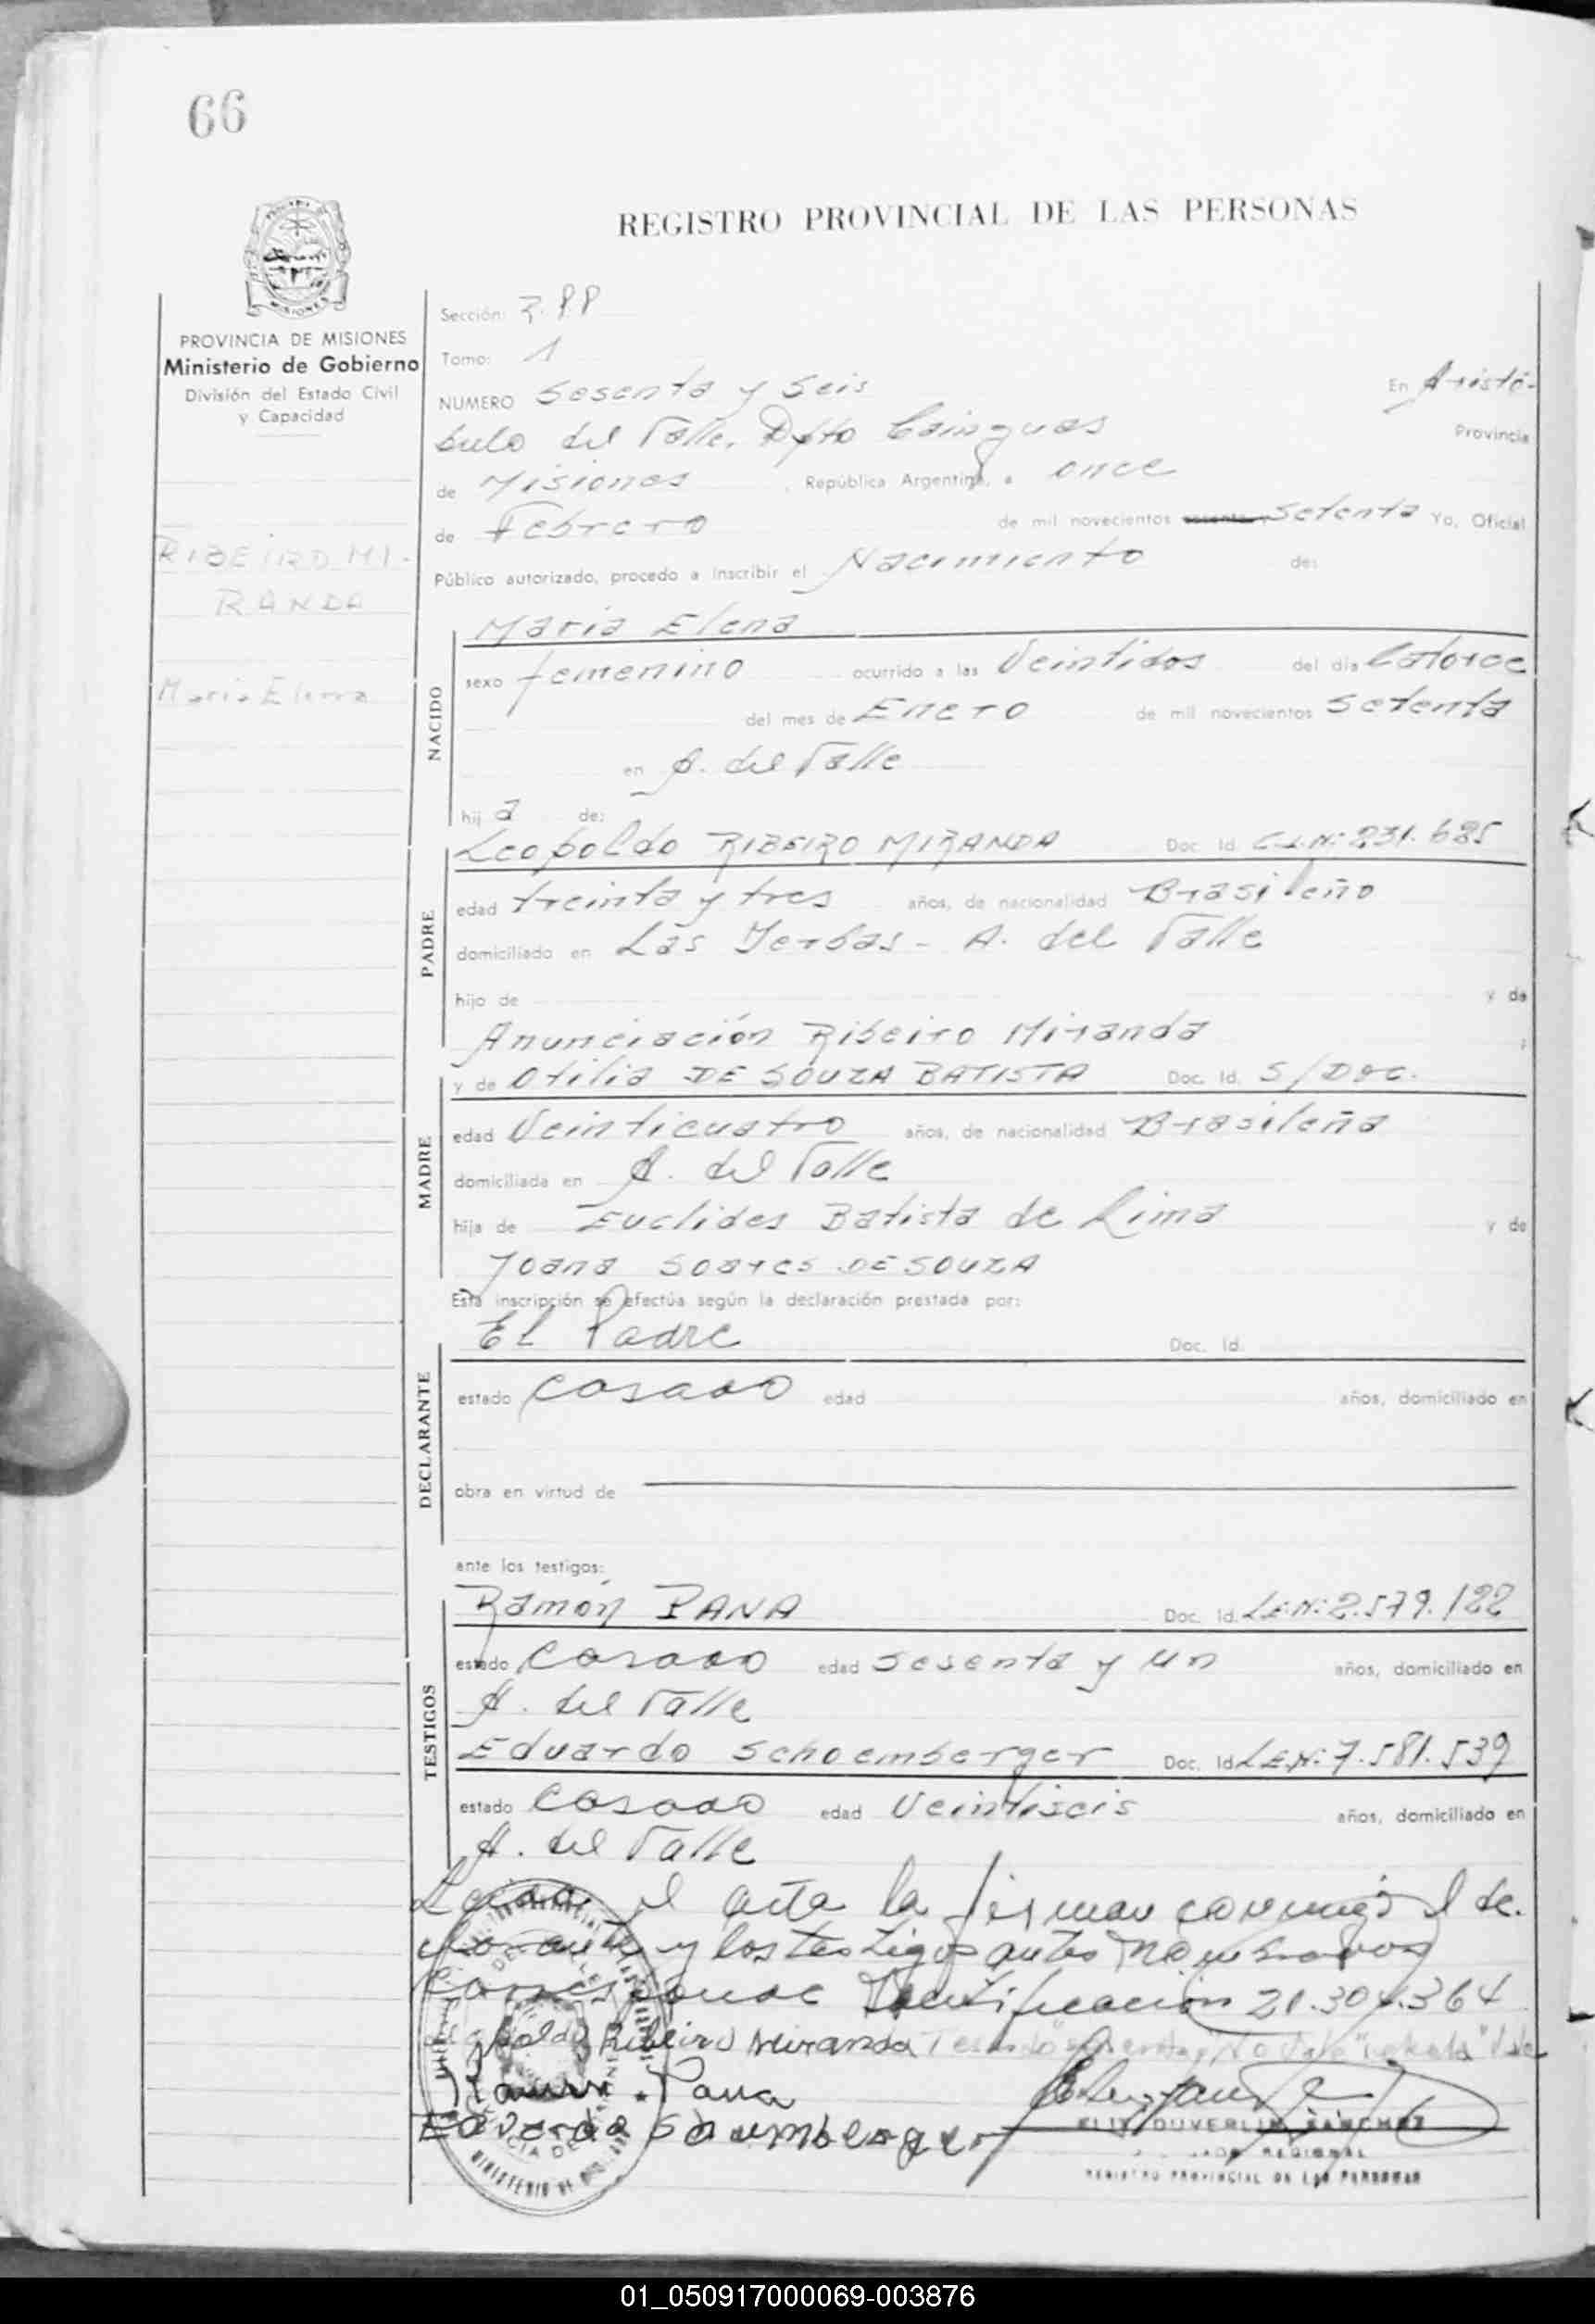 66
REGISTRO PROVINCIAL DE LAS PERSONAS
MISIONES
PROVINCIA DE MISIONES
Ministerio de Gobierno
División del Estado Civil
y Capacidad
RIBEIRO MI-
RANDA
Maria Elena
Sección:
Tomo: 1
NUMERO Sesenta y Seis En Aristó-
bulo del Valle, Dpto Cainguas Provincia
de Misiones, República Argentina, a once
de Febrero de mil novecientos setenta Yo, Oficial
Público autorizado, procedo a inscribir el Nacimiento de:
NACIDO
Maria Elena
sexo femenino ocurrido a las Veintidos del día Catorce
del mes de Enero de mil novecientos Setenta
en A. del Valle
hij a de:
PADRE
Leopoldo RIBEIRO MIRANDA Doc. Id. C.I.N: 231.685
edad treinta y tres años, de nacionalidad Brasileño
domiciliado en Las Yerbas - A. del Valle
hijo de y de
Anunciación Ribeiro Miranda
MADRE
y de Otilia DE SOUZA BATISTA Doc. Id. S/Doc.
edad Veinticuatro años, de nacionalidad Brasileña
domiciliada en A. del Valle
hija de Euclides Batista de Lima y de
Joana Soares DE SOUZA
Esta inscripción se efectúa según la declaración prestada por:
DECLARANTE
El Padre Doc. Id.
estado Casado edad años, domiciliado en
obra en virtud de
ante los testigos:
TESTIGOS
Ramón PANA Doc. Id. L.E.N: 2.579.122
estado Casado edad sesenta y un años, domiciliado en
A. del Valle
Eduardo Schoemberger Doc. Id. L.E.N: 7.581.539
estado Casado edad Veintiseis años, domiciliado en
A. del Valle
Leida el acta la firman conmigo el de-
clarante y los testigos antes nombrados
Corresponde Identificación 21.304.364
Leopoldo Ribeiro Miranda Testado "sesenta" No Vale "setenta" Vale
Ramon Pana
ELIX DUVERLIN SANCHEZ
REGIONAL
REGISTRO PROVINCIAL DE LAS PERSONAS
01_050917000069-003876